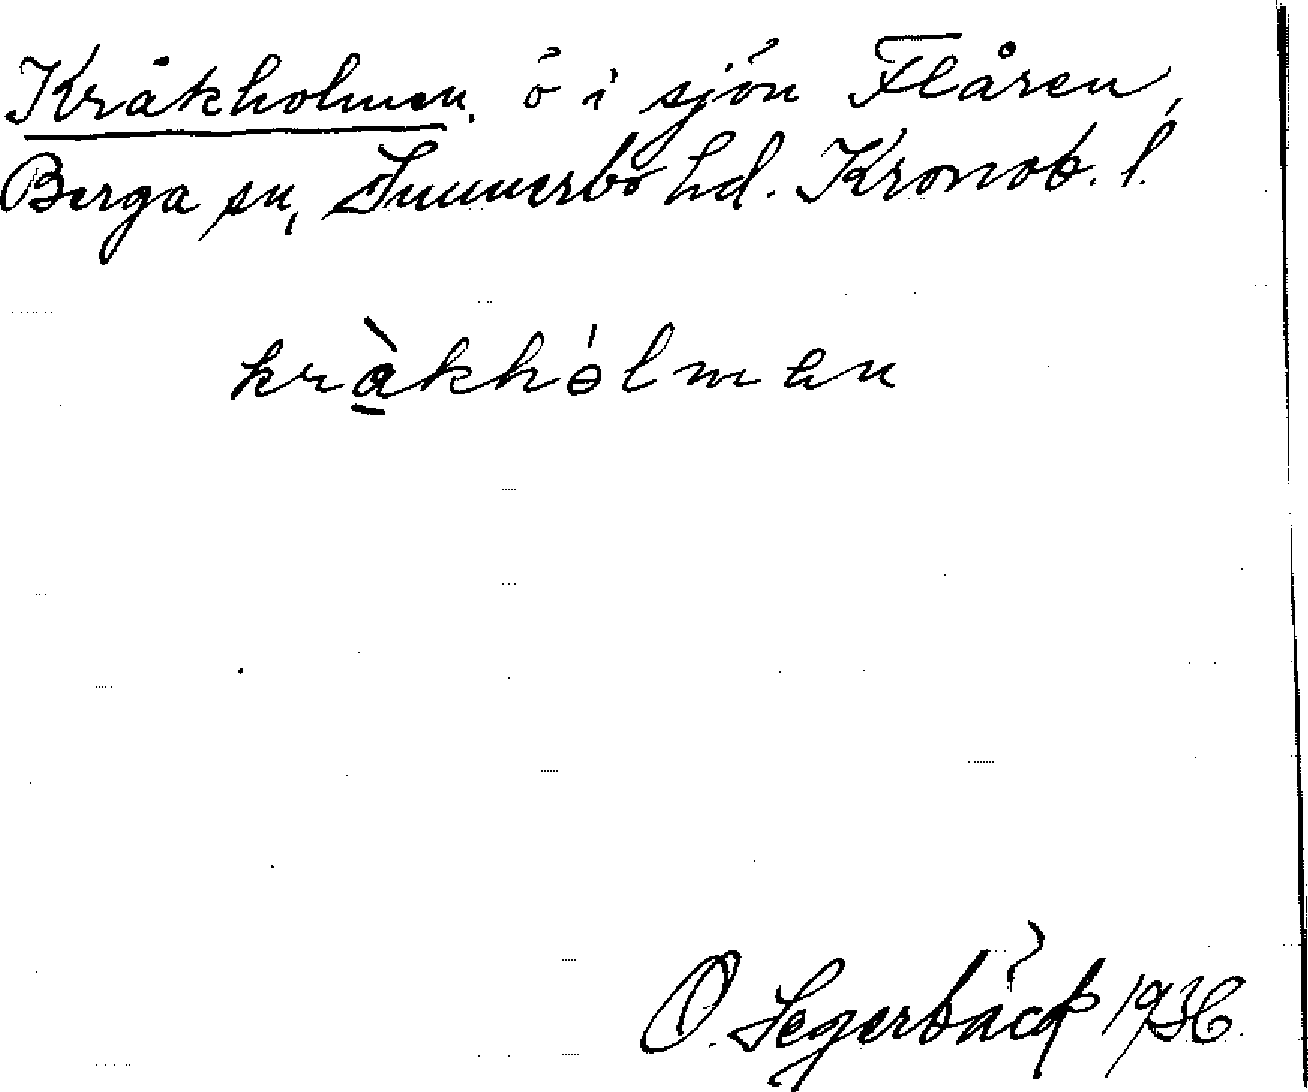 Kråkholmen, ö i sjön Flåren,
Berga sn, Sunnerbo hd. Kronob. l.
kràkhólmen
O. Segerbäck 1936.